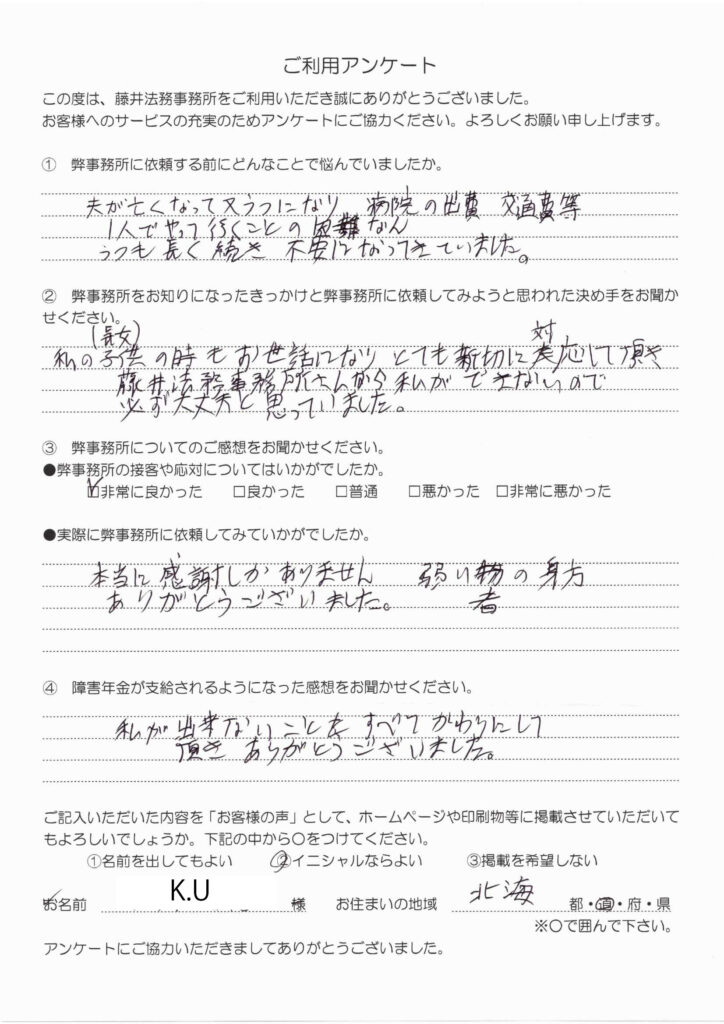 ご利用アンケート
この度は、藤井法務事務所をご利用いただき誠にありがとうございました。
お客様へのサービスの充実のためアンケートにご協力ください。よろしくお願い申し上げます。
① 弊事務所に依頼する前にどんなことで悩んでいましたか。
夫が亡くなって又うつになり 病院の出費 交通費等
1人でやって行くことの困難なん
うつも長く続き 不安になってきていました。
② 弊事務所をお知りになったきっかけと弊事務所に依頼してみようと思われた決め手をお聞か
せください。
(長女)
私の子供の時もお世話になり とても親切に対応して頂き
藤井法務事務所さんから私ができないので
必ず大丈夫と思っていました。
③ 弊事務所についてのご感想をお聞かせください。
●弊事務所の接客や応対についてはいかがでしたか。
☑非常に良かった □良かった □普通 □悪かった □非常に悪かった
●実際に弊事務所に依頼してみていかがでしたか。
本当に感謝しかありません 弱い者の身方
ありがとうございました。
④ 障害年金が支給されるようになった感想をお聞かせください。
私が出来ないことをすべてかわりにして
頂きありがとうございました。
ご記入いただいた内容を「お客様の声」として、ホームページや印刷物等に掲載させていただいて
もよろしいでしょうか。下記の中から〇をつけてください。
①名前を出してもよい ②イニシャルならよい ③掲載を希望しない
お名前 K.U 様 お住まいの地域 北海 都・道・府・県
※〇で囲んで下さい。
アンケートにご協力いただきましてありがとうございました。